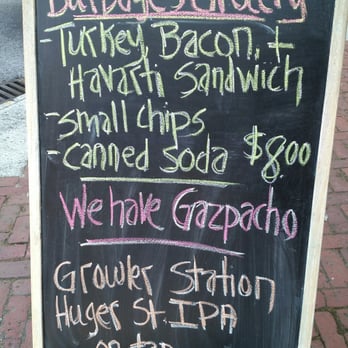 Burbage's Grocery
-Turkey, Bacon, +
Havarti Sandwich
-small chips
-canned soda $8.00
We have Gazpacho
Growler Station
Huger St. IPA
on tap